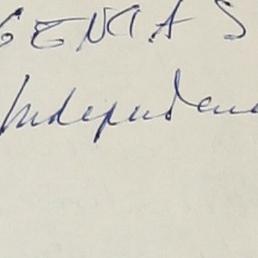 GENCIAS
Independenc